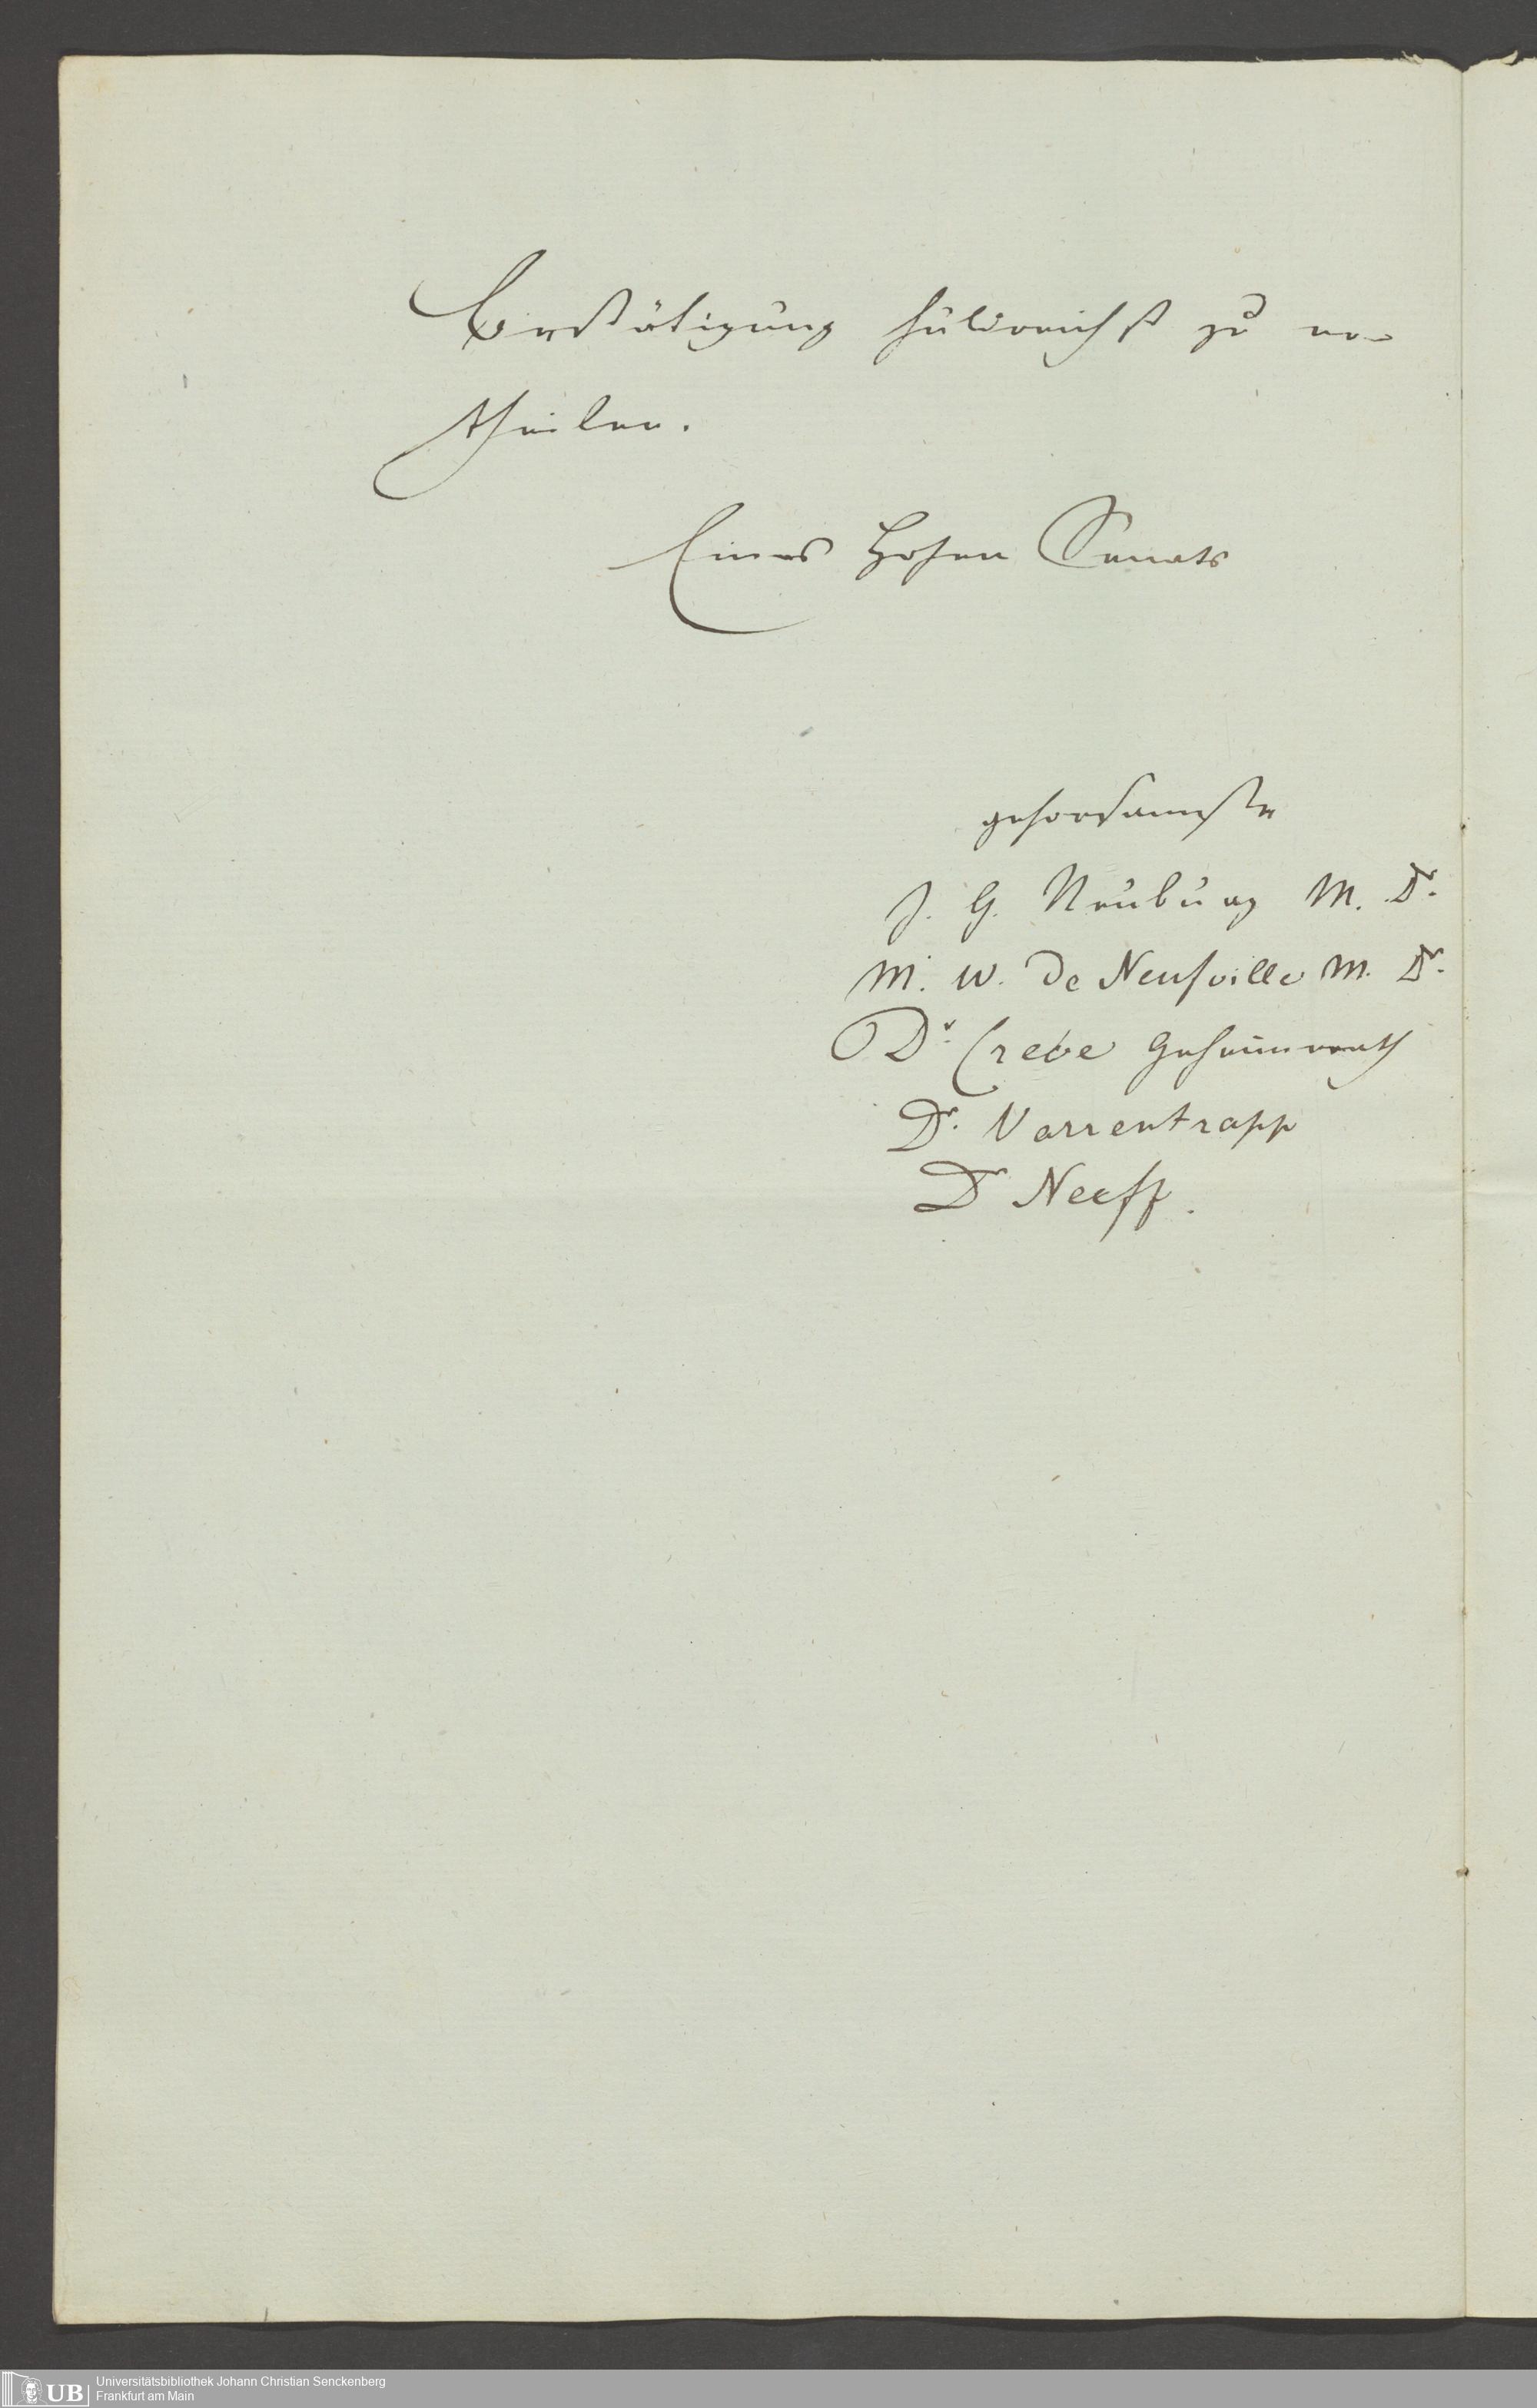 Bestätigung huldreichst zu er-
theilen.
Eines Hohen Senats
gehorsamste
J. G. Neuburg M. Dr.
M. W. de Neufville M. Dr.
Dr. Creve Geheimerath
Dr. Varrentrapp
Dr Neeff.
UB
Universitätsbibliothek Johann Christian Senckenberg
Frankfurt am Main